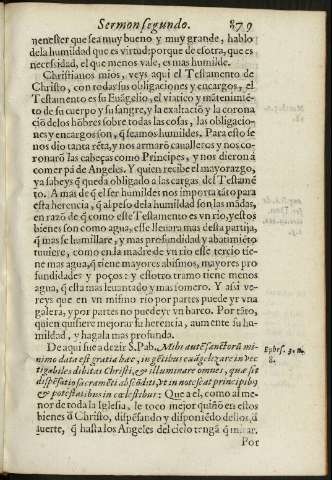 Sermon segundo. 879
menester que sea muy bueno y muy grande, hablo
de la humildad que es virtud; porque de esotra, que es
necesidad, el que menos vale, es mas humilde.
Christianos mios, veys aqui el Testamento de
Christo, con todas sus obligaciones y encargos, el
Testamento es su Euãgelio, el viatico y mãtenimiẽ-
to de su cuerpo y su sangre, y la exaltaciõ y la corona
ciõ de los hõbres sobre todas las cosas, las obligacio-
nes y encargos son, q̃ seamos humildes. Para esto se
nos dio tanta rẽta, y nos armarõ caualleros y nos co-
ronarõ las cabeças como Principes, y nos dieron à
comer pã de Angeles. Y quien recibe el mayorazgo,
ya sabeys q̃ queda obligado a las cargas del Testamẽ
to. A mas de q̃ el ser humildes nos importa tãto para
esta herencia, q̃ al peso de la humildad son las mãdas,
en razõ de q̃ como este Testamento es vn rio, y estos
bienes son como agua, esse lleuara mas desta partija,
q̃ mas se humillare, y mas profundidad y abatimiẽto
tuuiere, como en la madre de vn rio esse tercio tie-
ne mas agua, q̃ tiene mayores abismos, mayores pro
fundidades y poços: y estotro tramo tiene menos
agua, q̃ esta mas leuantado y mas somero. Y assi ve-
reys que en vn mismo rio por partes puede yr vna
galera, y por partes no puede yr vn barco. Por tãto,
quien quisiere mejorar la herencia, aumente su hu-
mildad, y hagala mas profunda.
De aqui fue a dezir S. Pab. Mihi autẽ sanctorũ mi-
nimo data est gratia hæc, in gẽtibus euãgelizare inves
tigabiles diuitias Christi, & illuminare omnes, quæ sit
dispẽsatio sacramẽti abscõditi, vt innotescat principibꝰ
& potestatibus in cœlestibus: Que a el, como al me-
nor de toda la Iglesia, le toco mejor quiñõ en estos
bienes d̃ Christo, dispẽsando y disponiẽdo dellos, d̃
suerte, q̃ hasta los Angeles del cielo tengã q̃ mirar.
Por
Ephes. 3. n.
8.